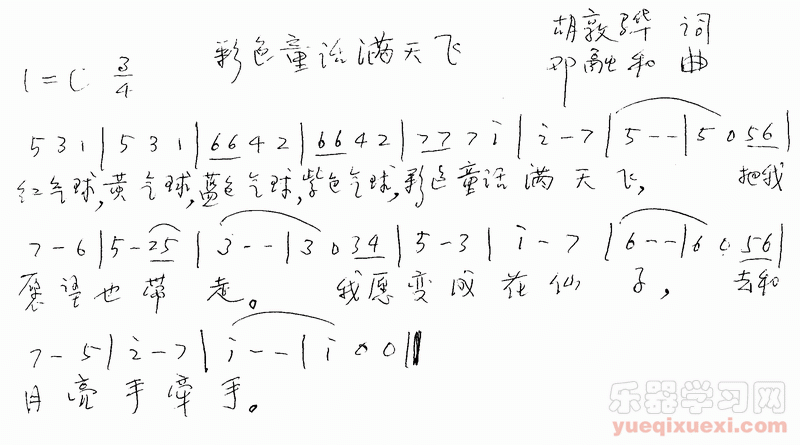 彩色童话满天飞
胡敦骅 词
邓融和 曲
1=C 3/4
5 3 1 | 5 3 1 | 66 4 2 | 66 4 2 | 77 7 i | i - 7 | 5 - - | 5 0 56 |
红气球,黄气球,蓝色气球,紫色气球,彩色童话满天飞, 把我
7 - 6 | 5 - 25 | 3 - - | 3 0 34 | 5 - 3 | i - 7 | 6 - - | 6 0 56 |
愿望也带走。 我愿变成花仙子, 去和
7 - 5 | 2 - 7 | i - - | i 0 0 ||
月亮手牵手。
乐器学习网
yueqixuexi.com